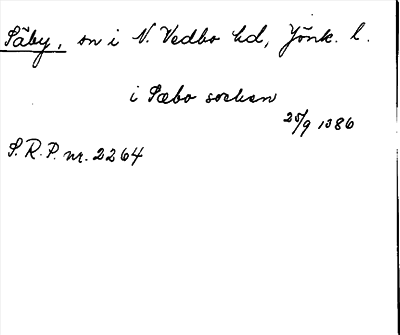 Säby, sn i N. Vedbo hd, Jönk. l.
i Sæbo sochen
25/9 1386
S.R.P. nr. 2264